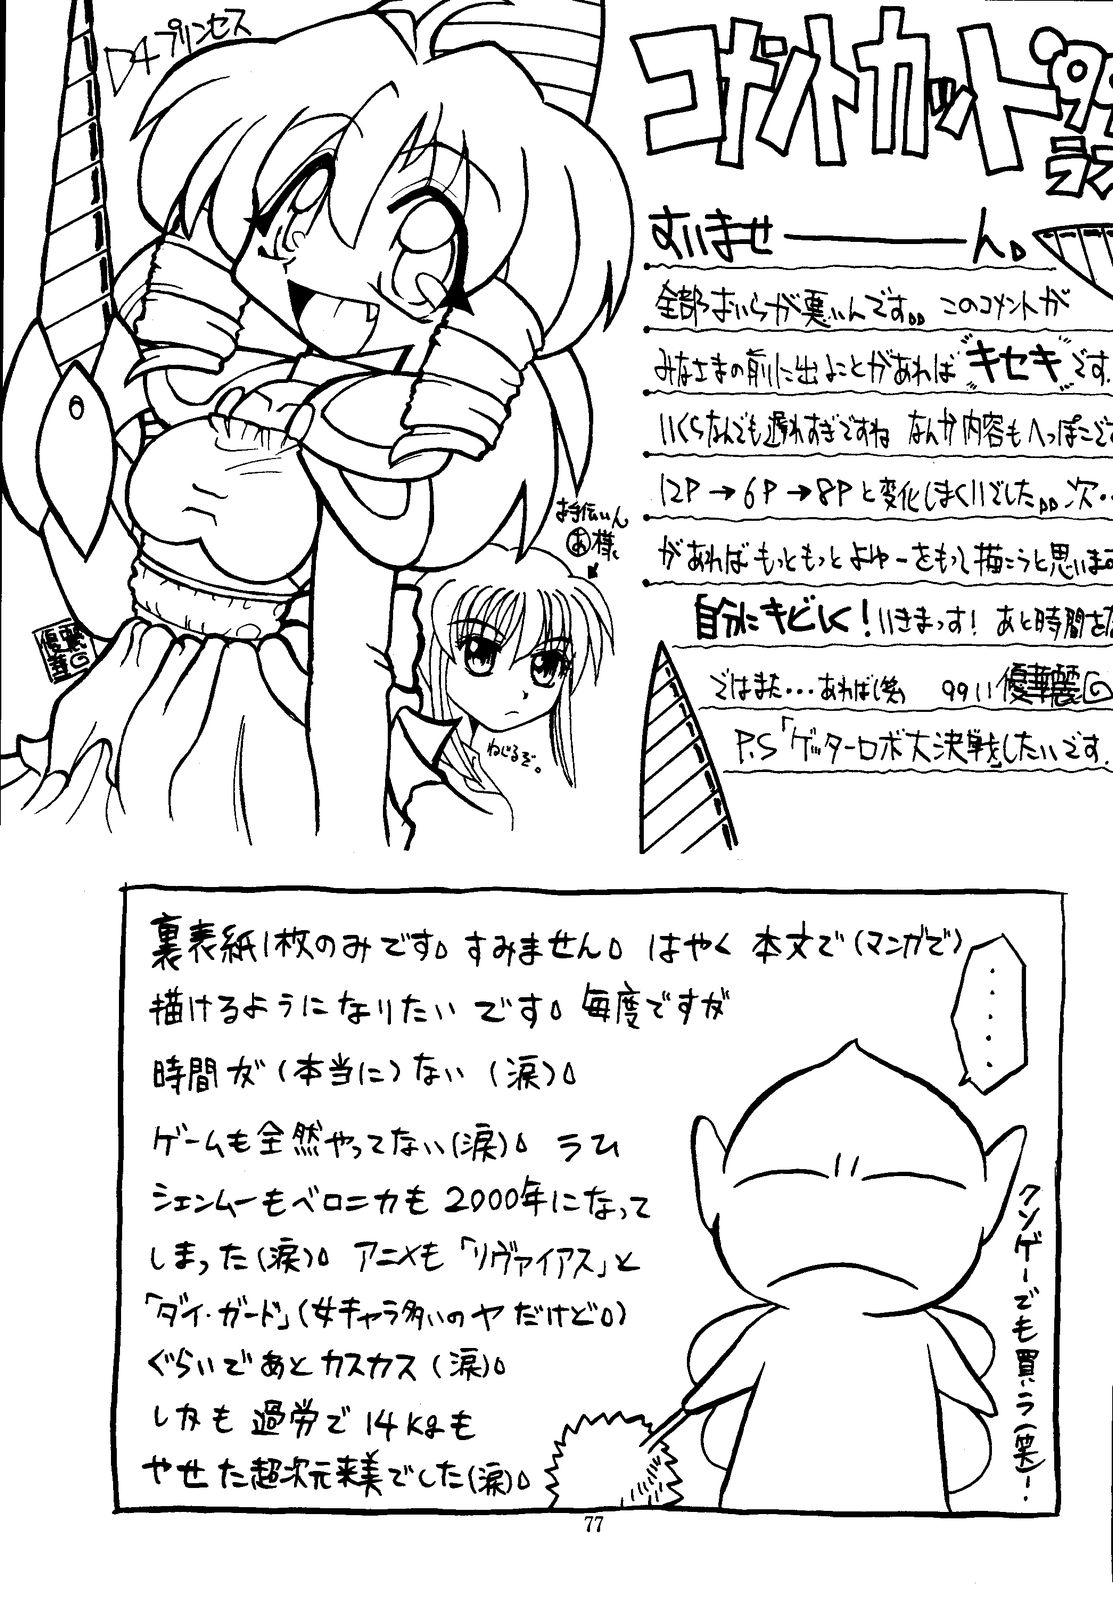 D4プリンセス
コメントカット'99
ラス
すいませーーーーん。
全部おいらが悪いんです。。このコメントが
みなさまの前に出ることがあれば"キセキ"です。
いくらなんでも遅れすぎですね なんか内容もへっぽこです
12P→6P→8Pと変化しまくりでした。。次・・
があればもっともっとよゆーをもって描こうと思いま
自分にキビしく!いきまっす!あと時間を
ではまた・・・あれば(笑) 99 11 優華麗
P.S「ゲッターロボ大決戦」したいです。
お手伝いん
あ様
ねじるぞ。
優華麗
裏表紙1枚のみです。すみません。はやく本文で(マンガで)
描けるようになりたいです。毎度ですが
時間が(本当に)ない(涙)。
ゲームも全然やってない(涙)。ラひ
シェンムーもベロニカも2000年になって
しまった(涙)。アニメも「リヴァイアス」と
「ダイ・ガード」(女キャラ多いのヤだけど。)
ぐらいであとカスカス(涙)。
しかも過労で14kgも
やせた超次元来美でした(涙)。
・・・・・
クソゲーでも買いラ(笑)!
77